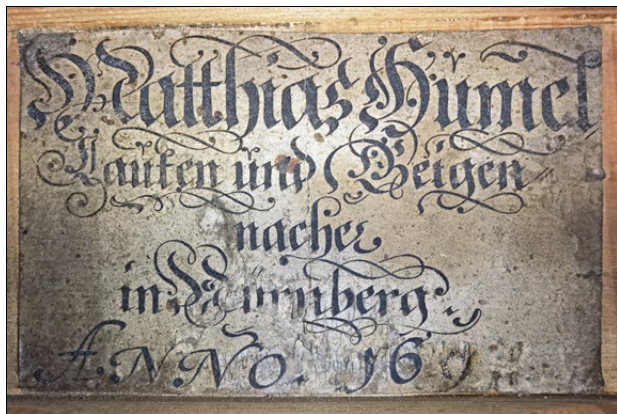 Matthias Hümel
Lauten und Geigen
macher
in Nürnberg.
ANNO. 16